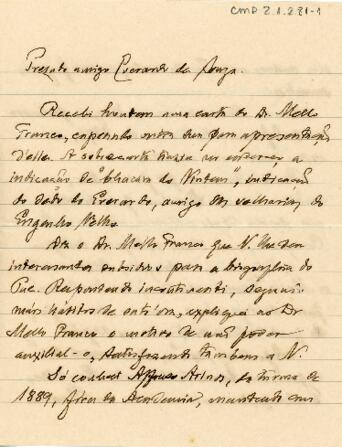 CMP 2.1.281-1
Prezado amigo Everardo de Souza.
Recebi hontem uma carta do Dr. Mello
Franco,
d'elle. A sobrecarta trazia no endereço a
indicação de "Chacara do Vintem", indicação
do Everardo, amigo das velharias do
Engenho Velho.
Diz o Dr. Mello Franco que V. lhe deu
interessantes subsidios para a biographia do
Respondendo incontinenti, segundo
meus habitos de outr'ora, expliquei ao Dr
Mello Franco o motivo de não poder
auxilial-o, satisfazendo tambem a V.
Só conheci Affonso Arinos, da turma de
1889, fóra da Academia,